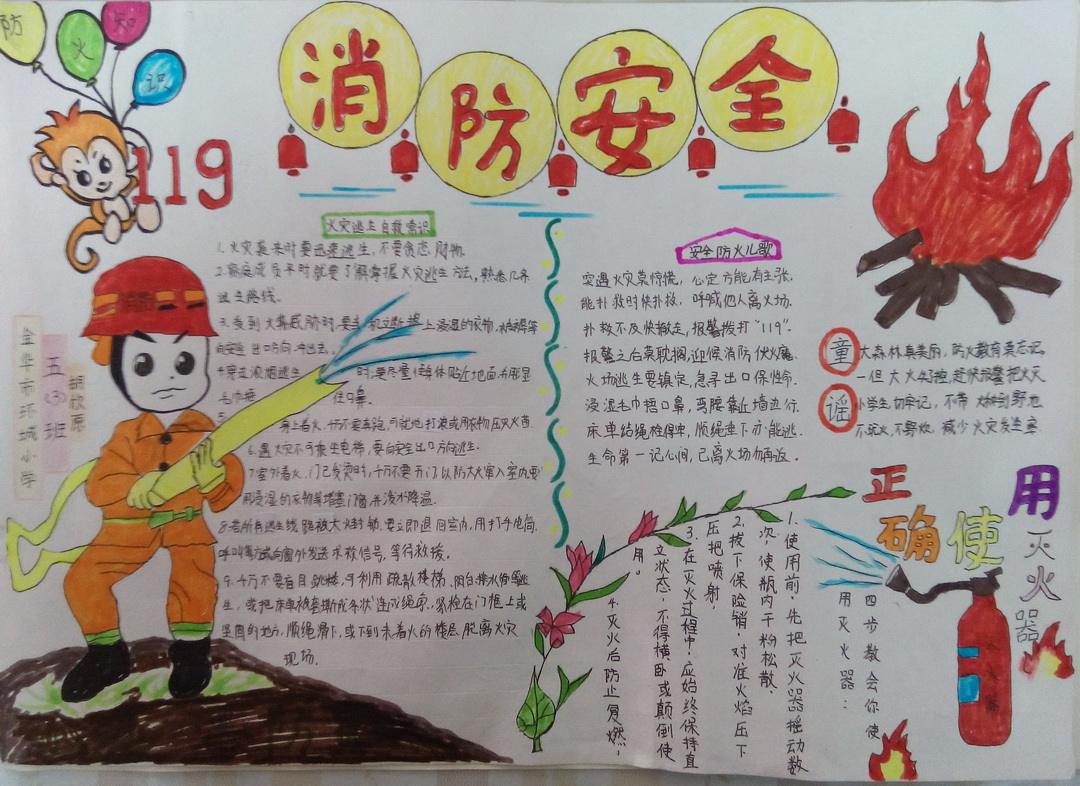 防火知识
消防安全
119
火灾逃生自救常识
1.火灾袭来时要迅速逃生,不要贪恋财物.
2.家庭成员平时就要了解掌握火灾逃生方法,熟悉几条
逃生路线.
3.受到火势威胁时,要当机立断披上浸湿的衣物,
向安全出口方向冲出去.
4.穿过浓烟逃生时,要尽量使身体贴近地面,
毛巾捂住口鼻.
5.身上着火,千万不要奔跑,可就地打滚或用衣物压灭火苗
6.遇火灾不可乘坐电梯,要向安全出口方向逃生.
7.室外着火,门已发烫时,千万不要开门以防大火窜入室内,要
用浸湿的衣物等堵塞门窗,并泼水降温.
8.若所有逃生线路被大火封锁,要立即退回室内,用打手电筒,
呼叫等方式向窗外发送求救信号,等待救援.
9.千万不要盲目跳楼,可利用疏散楼梯、阳台、排水管等逃
生,或把床单被套撕成条状连成绳索,紧栓在门框上或
坚固的地方,顺绳滑下,或下到未着火的楼层脱离火灾
现场.
金华市环城小学
五(3)班
胡欣原
安全防火儿歌
突遇火灾莫惊慌,心定方能有主张.
能扑救时快扑救,呼喊他人离火场.
扑救不及快撤走,报警拨打"119".
报警之后莫耽搁,迎候消防伏火魔.
火场逃生要镇定,急寻出口保性命.
浸湿毛巾捂口鼻,弯腰靠近墙边行.
床单结绳栓得牢,顺绳垂下亦能逃.
生命第一记心间,已离火场勿再返.
童谣
大森林真美丽,防火教育莫忘记,
一但大火
小学生切牢记,不带火种到野地
不玩火,不野炊,减少火灾发生率
正确使用灭火器
四步教会你使
用灭火器:
1.使用前,先把灭火器摇动数
次,使瓶内干粉松散.
2.拔下保险销,对准火焰压下
压把喷射.
3.在灭火过程中,应始终保持直
立状态,不得横卧或颠倒使
用.
4.灭火后防止复燃.